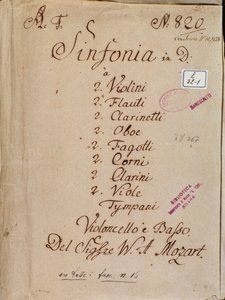 N. 820
Sinfonia in D.
à
2. Violini
2. Flauti
2. Clarinetti
2. Oboe
2. Fagotti
2. Corni
2. Clarini
2. Viole
Tympani
Violoncello e Basso.
Del Sigre W. A. Mozart.
MANOSCRITTI
BIBLIOTECA